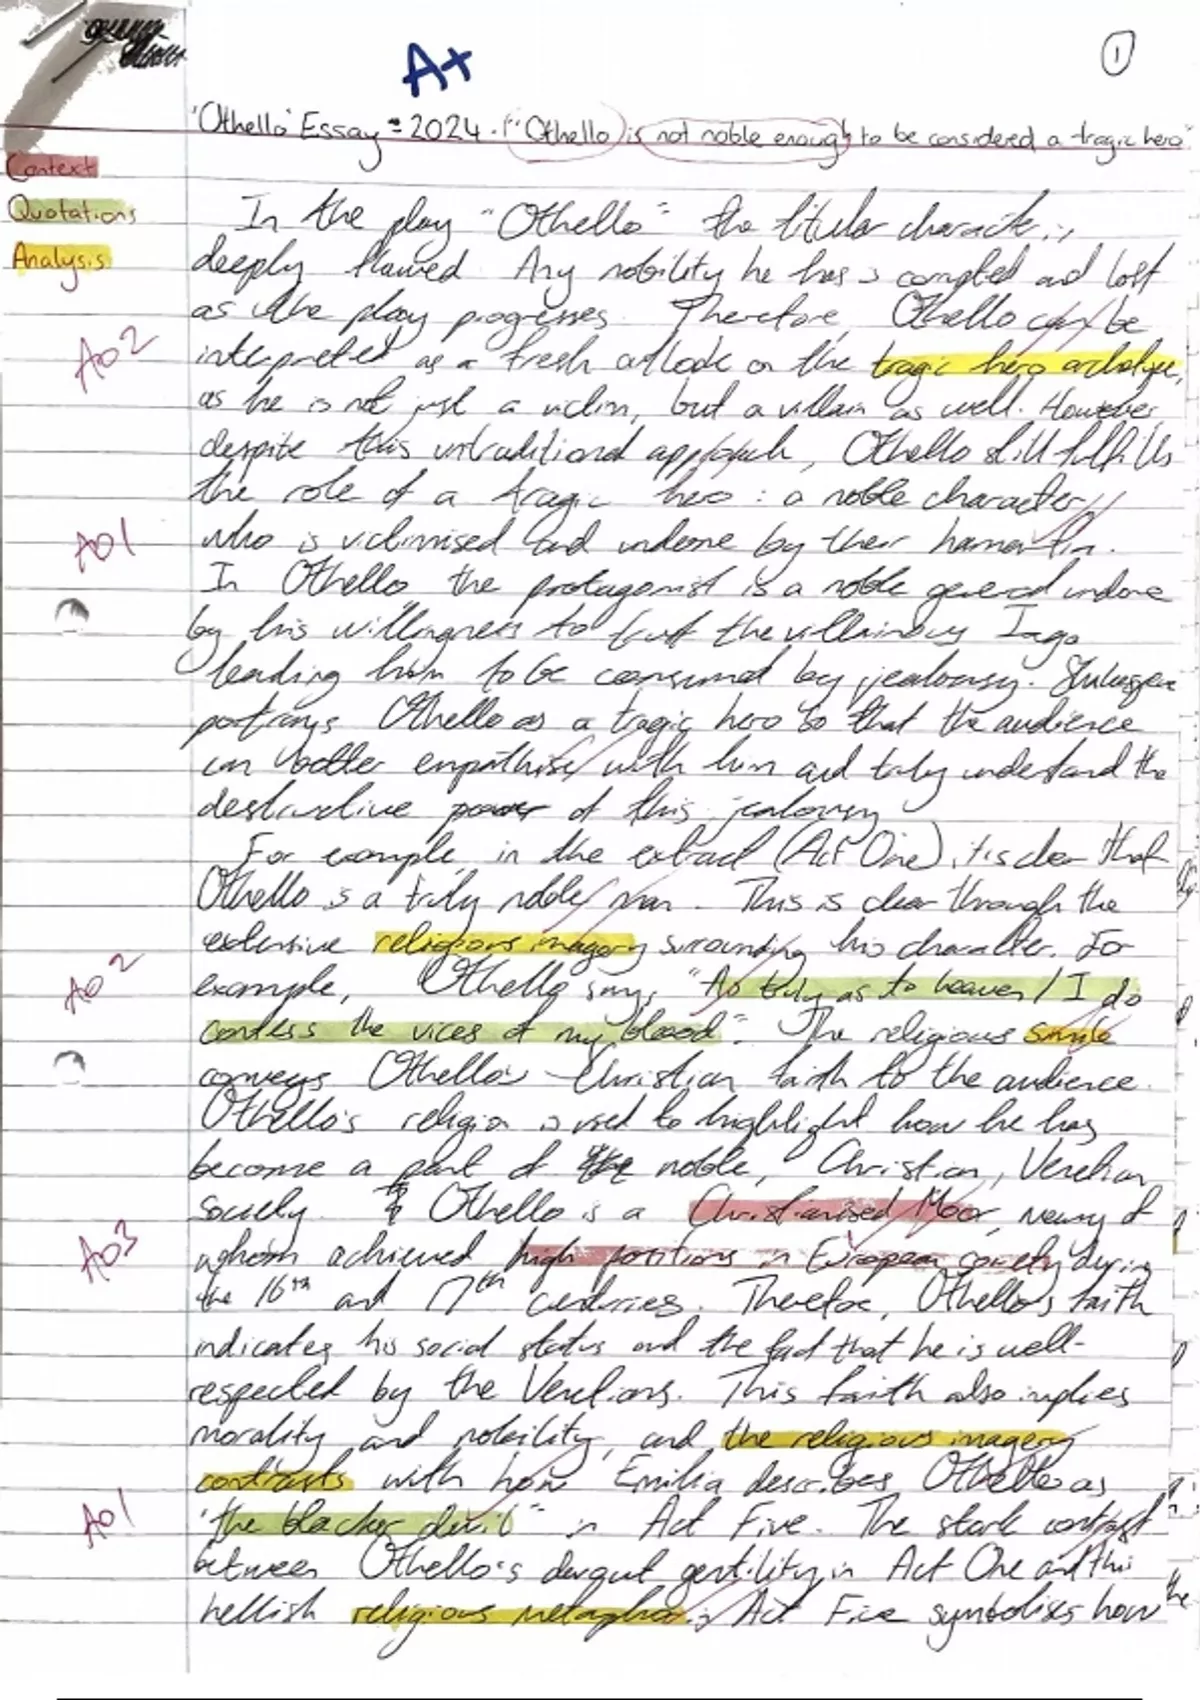 A+
1
'Othello' Essay = 2024 - "Othello is not noble enough to be considered a tragic hero"
Context
Quotations
Analysis
In the play "Othello" the titular character is
deeply flawed. Any nobility he has is corrupted and lost
as the play progresses. Therefore, Othello can be
AO2
interpreted as a fresh outlook on the tragic hero archetype,
as he is not just a victim, but a villain as well. However
despite this untraditional approach, Othello still fulfills
the role of a tragic hero: a noble character
AO1
who is victimised and undone by their hamartia.
In Othello the protagonist is a noble general undone
by his willingness to trust the villainous Iago
leading him to be consumed by jealousy. Shakespeare
portrays Othello as a tragic hero so that the audience
can better empathise with him and truly understand the
destructive power of this jealousy
For example, in the extract (Act One), it is clear that
Othello is a truly noble man. This is clear through the
extensive religious imagery surrounding his character. For
AO2
example, Othello says, "As truly as to heaven / I do
confess the vices of my blood". The religious simile
conveys Othello's Christian faith to the audience.
Othello's religion is used to highlight how he has
become a part of the noble, Christian, Venetian
society. Othello is a Christianised Moor, many of
AO3
whom achieved high positions in European society during
the 16th and 17th centuries. Therefore, Othello's faith
indicates his social status and the fact that he is well-
respected by the Venetians. This faith also implies
morality and nobility, and the religious imagery
contrasts with how Emilia describes Othello as
AO1
"the blacker devil" in Act Five. The stark contrast
between Othello's gentility in Act One and this
hellish religious metaphor in Act Five symbolises how
the